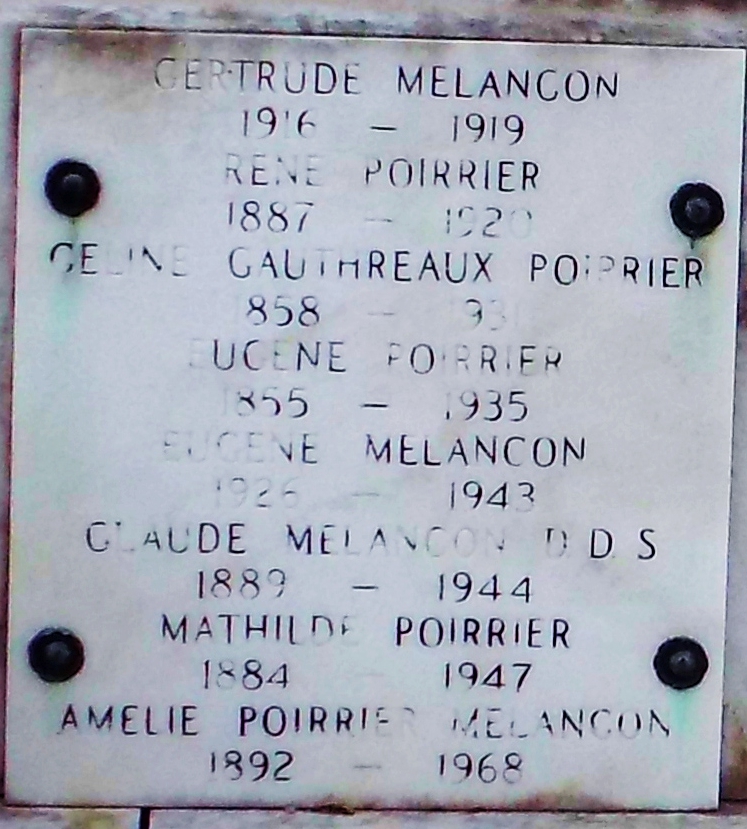 GERTRUDE MELANCON
1916 – 1919
RENE POIRRIER
1887 – 1920
CELINE GAUTHREAUX POIRRIER
1858 –
EUGENE POIRRIER
1855 – 1935
EUGENE MELANCON
1926 – 1943
CLAUDE MELANCON D.D.S
1889 – 1944
MATHILDE POIRRIER
1884 1947
AMELIE POIRRIER MELANCON
1892 – 1968